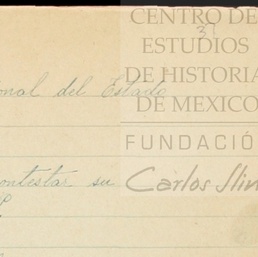 CENTRO DE
31
ESTUDIOS
DE HISTORIA
onal del Estado
DE MEXICO
FUNDACIÓ
ontestar su
Carlos Slin